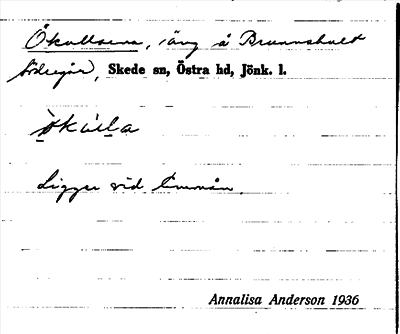 Ökullarna, äng å Brunnshult
Södregård, Skede sn, Östra hd, Jönk. l.
ö̀kúl̲a
Ligger vid Emmån.
Annalisa Anderson 1936